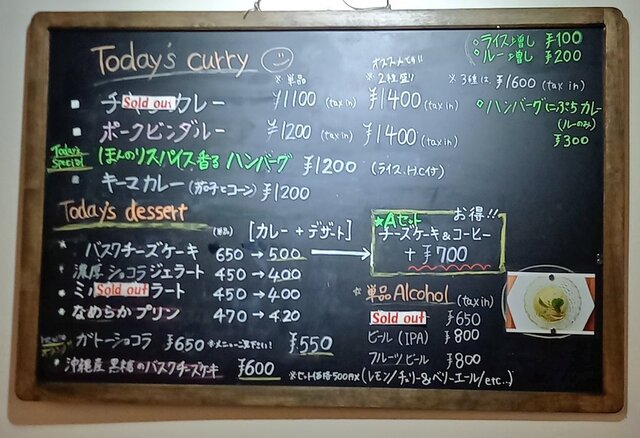 Today's curry
※単品
オススメです!!
※2種盛り
※3種は ¥1600 (tax in)
。ライス増し ¥100
。ルー増し ¥200
■ チ Sold out カレー ¥1100 (tax in) ¥1400 (tax in)
■ ポークビンダルー ¥1200 (tax in) ¥1400 (tax in)
。ハンバーグにぶちカレー
(ルーのみ)
¥300
Today's Special ほんのりスパイス香る ハンバーグ ¥1200 (ライス、H.C付)
■ キーマカレー (ナスとコーン) ¥1200
Today's dessert (単品) [カレー + デザート]
★ バスクチーズケーキ 650 → 500
濃厚ショコラジェラート 450 → 400
★ ミル Sold out ラート 450 → 400
★ なめらかプリン 470 → 420
ガトーショコラ ¥650 ※メニューご覧下さい! ¥550
★ 沖縄産 黒糖のバスクチーズケーキ ¥600 ※セット価格500円
★Aセット お得!!
チーズケーキ&コーヒー
+ ¥700
★ 単品Alcohol (tax in)
Sold out ¥650
ビール (IPA) ¥800
フルーツビール ¥800
(レモン/チェリー&ベリーエール/etc...)